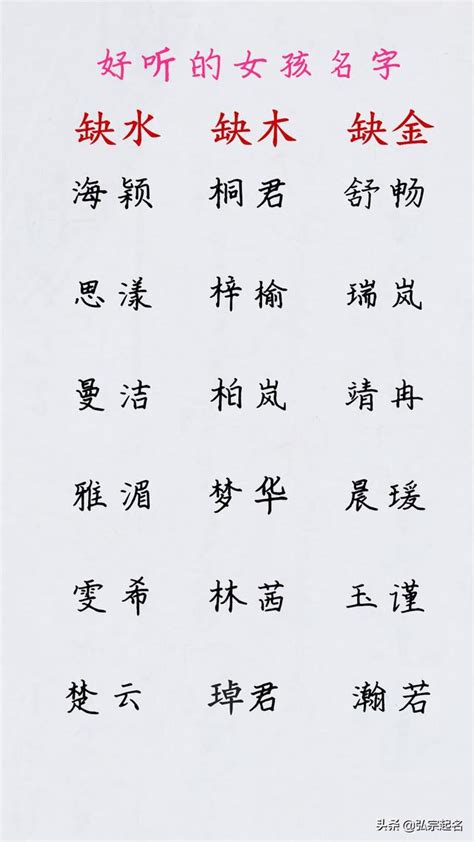 好听的女孩名字
缺水 缺木 缺金
海颖 桐君 舒畅
思漾 梓榆 瑞岚
曼洁 柏岚 靖冉
雅湄 梦华 晨瑗
雯希 林茜 玉谨
楚云 琸君 瀚若
头条 @弘宗起名